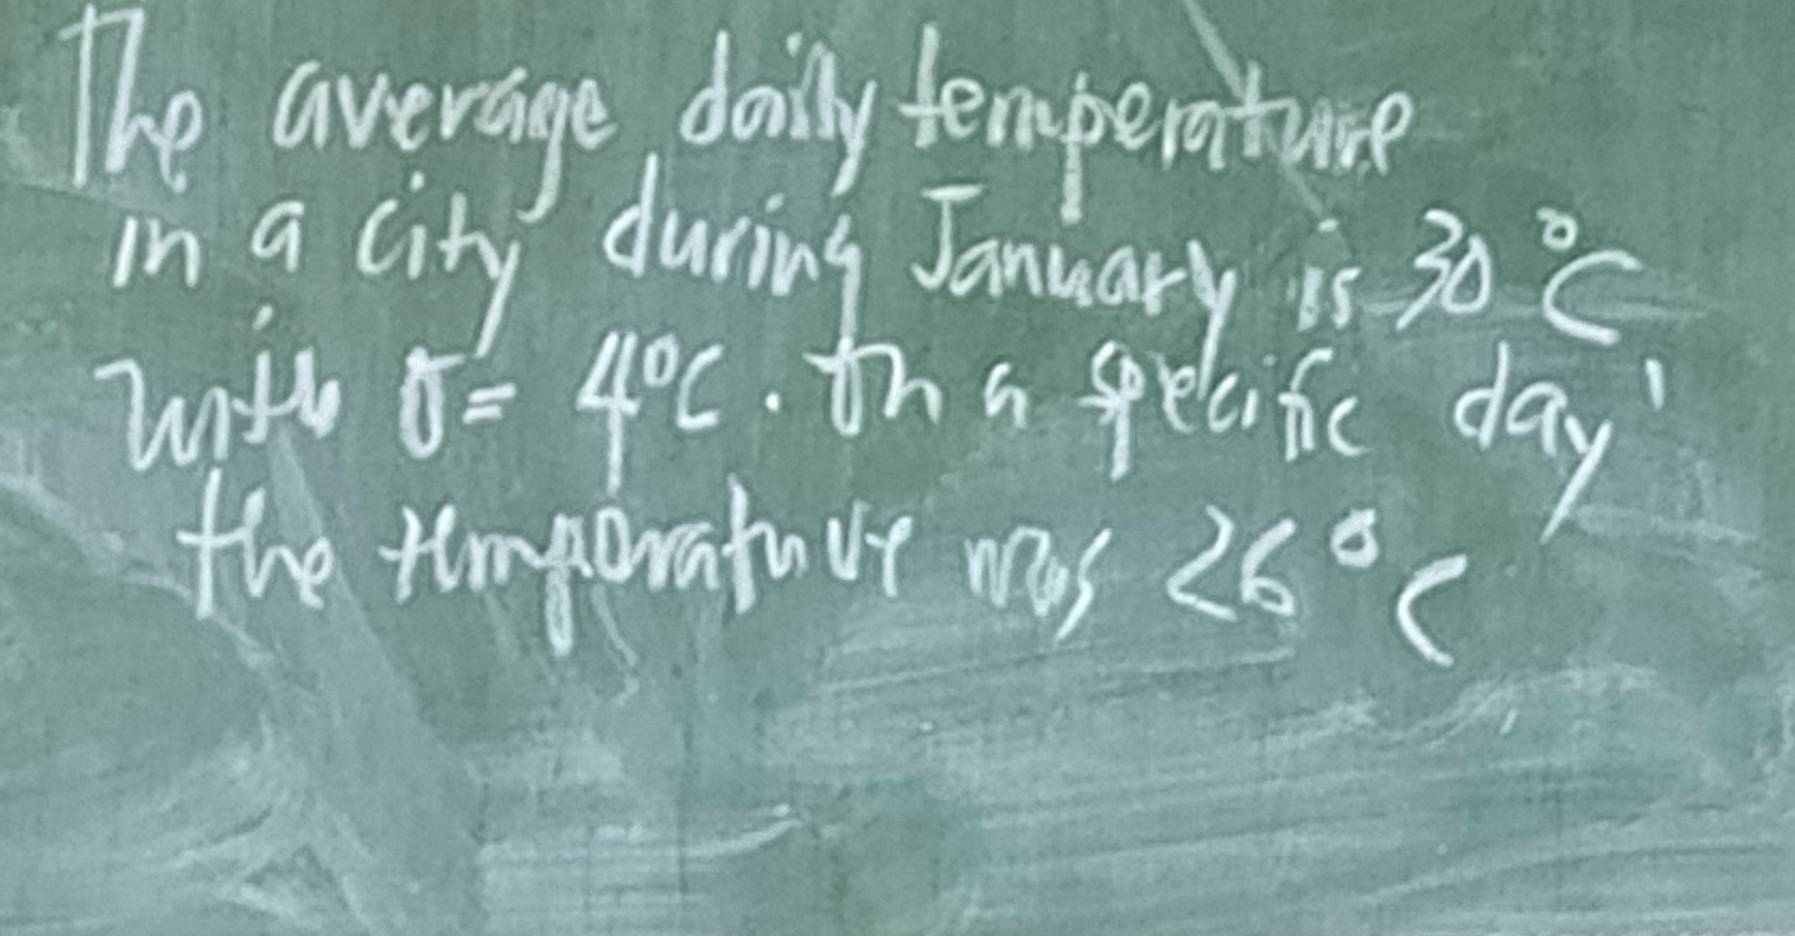 The average daily temperature
in a city during January is 30°C
with σ = 4°C. On a specific day,
the temperature was 26°C